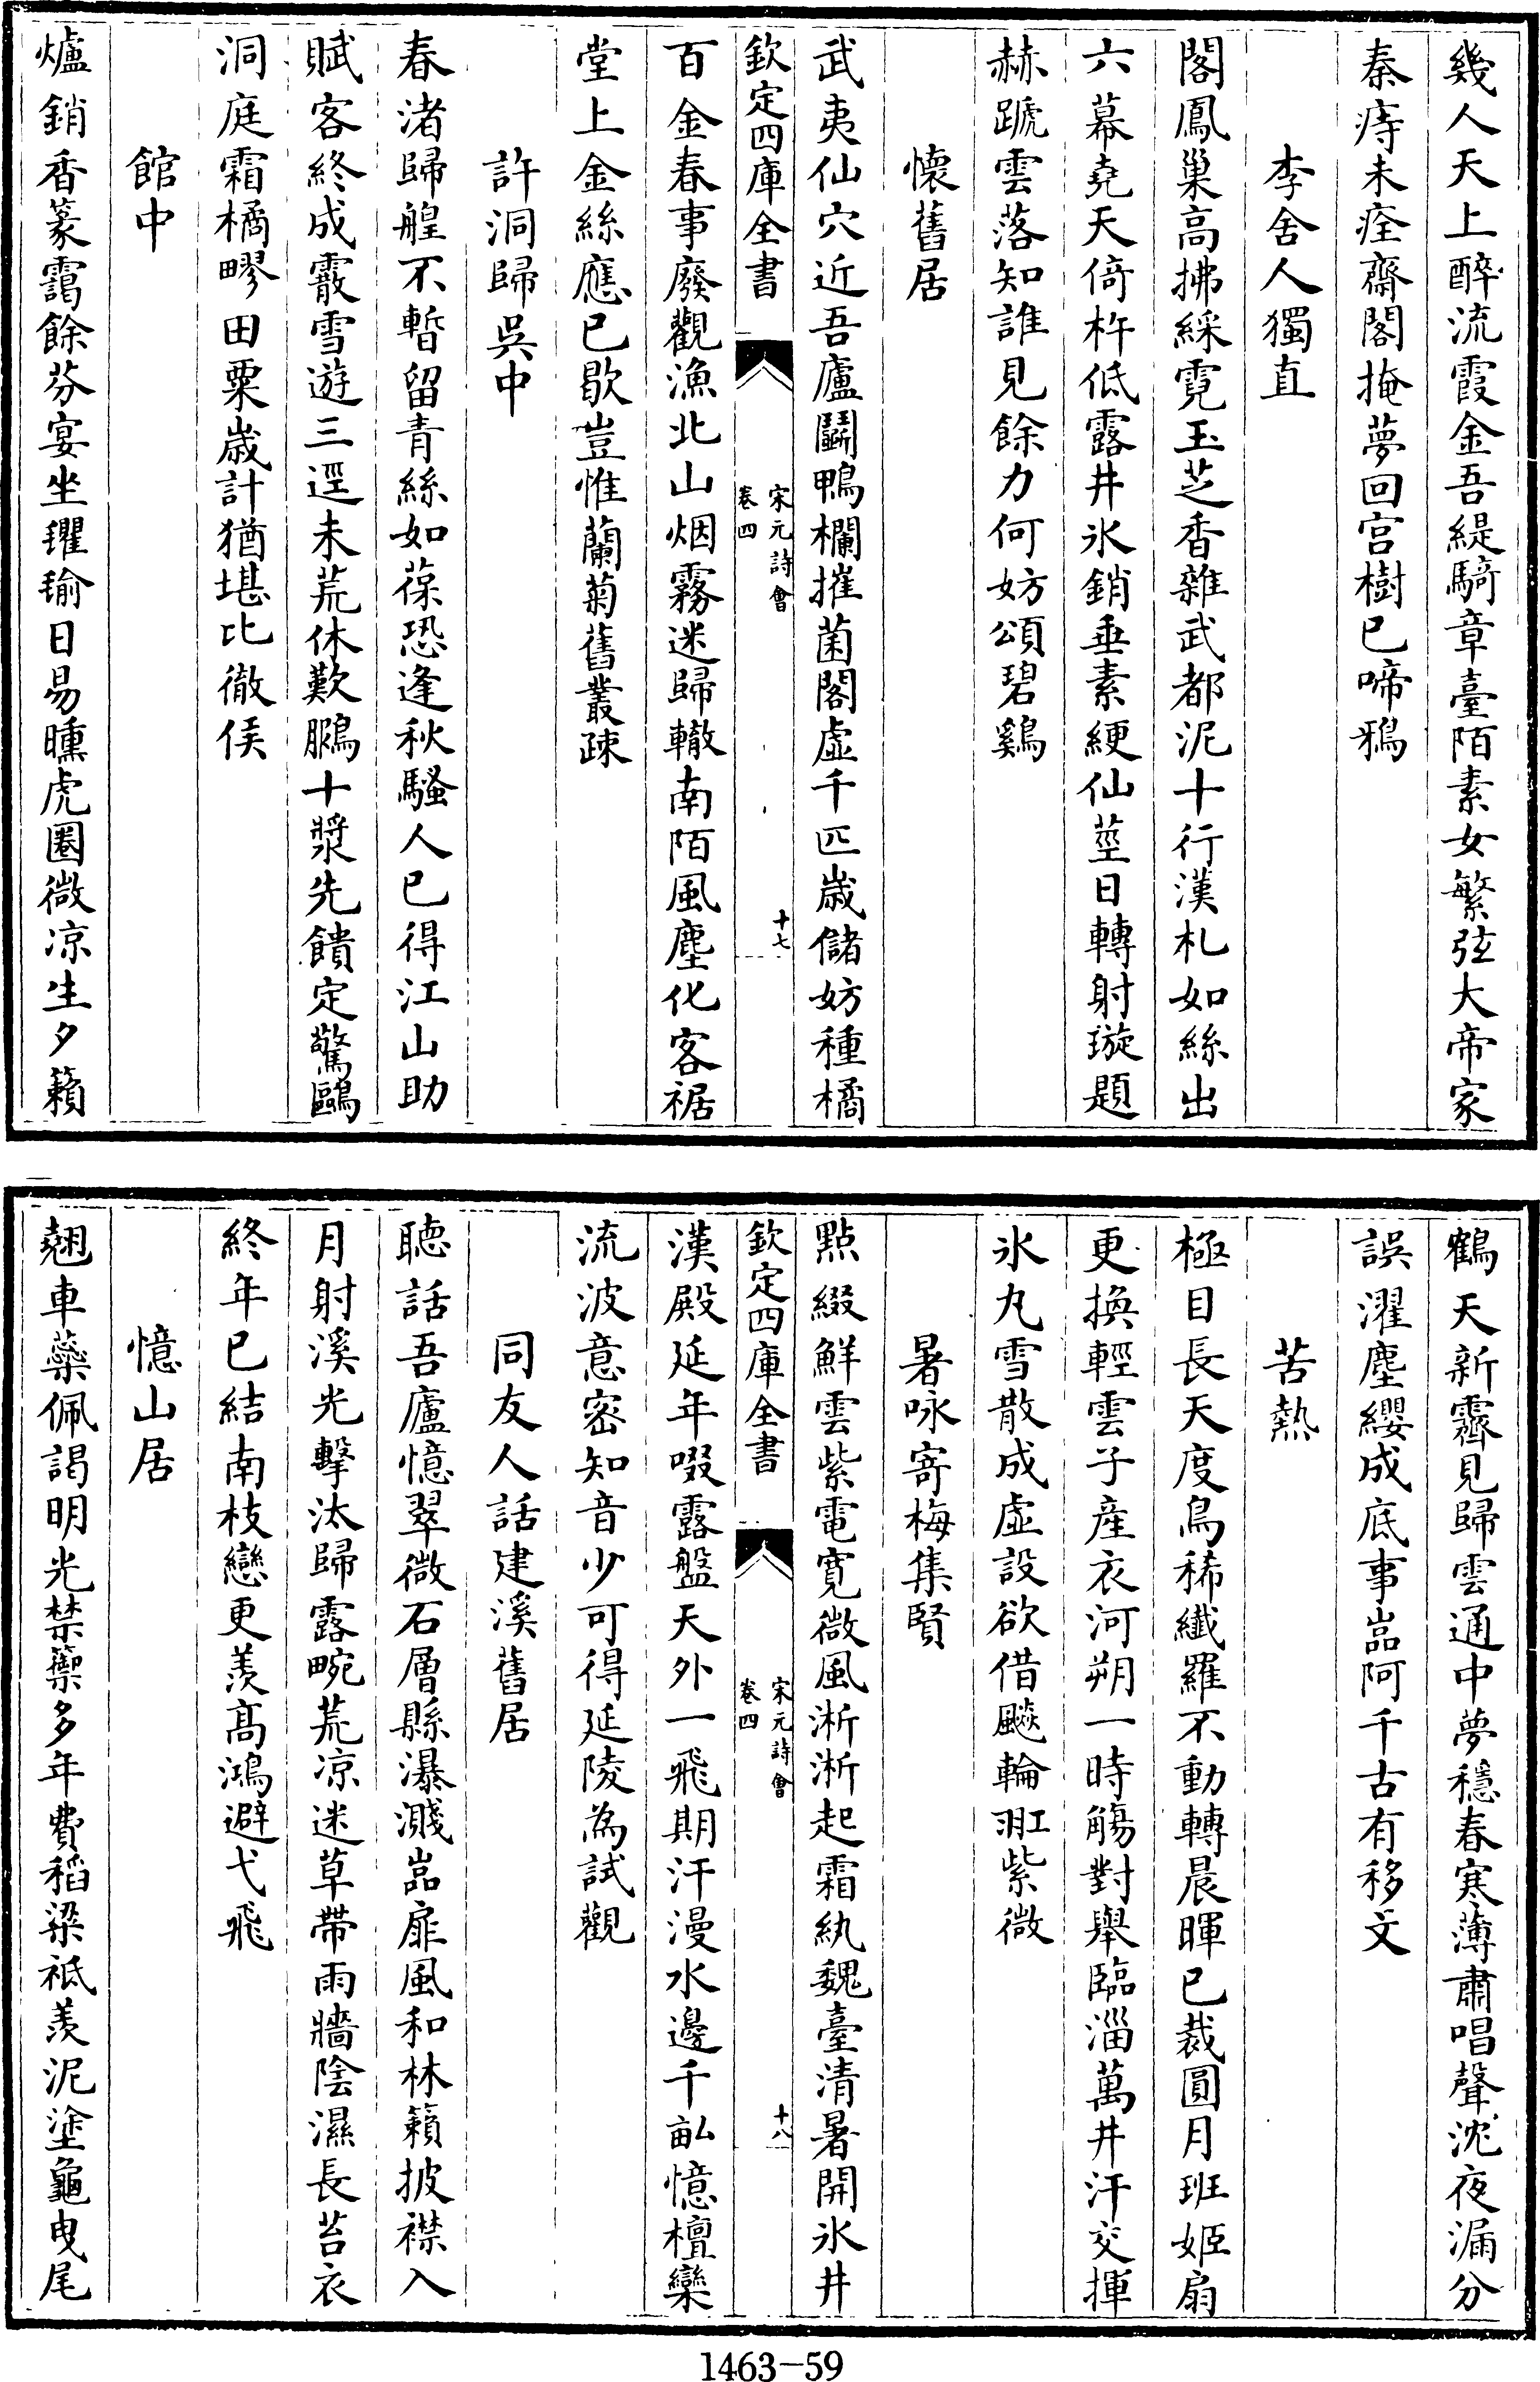 幾人天上醉流霞金吾緹騎章臺陌素女繁弦大帝家
秦痔未痊齋閣掩夢回宫樹已啼鴉
李舍人獨直
閣鳳巢高拂綵霓玉芝香雜武都泥十行漢札如絲出
六幕堯天倚杵低露井氷銷垂素綆仙莖日轉射璇題
赫蹏雲落知誰見餘力何妨頌碧鷄
懷舊居
武夷仙穴近吾廬鬭鴨欄摧菌閣虛千匹歲儲妨種橘
欽定四庫全書
宋元詩會
卷四
十七
百金春事廢觀漁北山烟霧迷歸轍南陌風塵化客裾
堂上金絲應已歇豈惟蘭菊舊叢疎
許洞歸吳中
春渚歸艎不暫留青絲如葆恐逢秋騷人已得江山助
賦客終成霰雪遊三逕未荒休歎鵩十漿先饋定驚鷗
洞庭霜橘疁田粟歲計猶堪比徹侯
館中
爐銷香篆靄餘芬宴坐瓘瑜日易曛虎圈微凉生夕籟
鶴天新霽見歸雲通中夢穩春寒薄肅唱聲沈夜漏分
誤濯塵纓成底事嵓阿千古有移文
苦熱
極目長天度鳥稀纖羅不動轉晨暉已裁圓月班姬扇
更換輕雲子産衣河朔一時觴對舉臨淄萬井汗交揮
氷丸雪散成虛設欲借飈輪羾紫微
暑咏寄梅集賢
點綴鮮雲紫電寛微風淅淅起霜紈魏臺清暑開氷井
欽定四庫全書
宋元詩會
卷四
十八
漢殿延年啜露盤天外一飛期汗漫水邊千畝憶檀欒
流波意密知音少可得延陵為試觀
同友人話建溪舊居
聽話吾廬憶翠微石層縣瀑濺嵓扉風和林籟披襟入
月射溪光擊汰歸露畹荒凉迷草帶雨牆陰濕長苔衣
終年已結南枝戀更羡髙鴻避弋飛
憶山居
翹車蘂佩謁明光禁籞多年費稻粱祗羨泥塗龜曳尾
1463-59